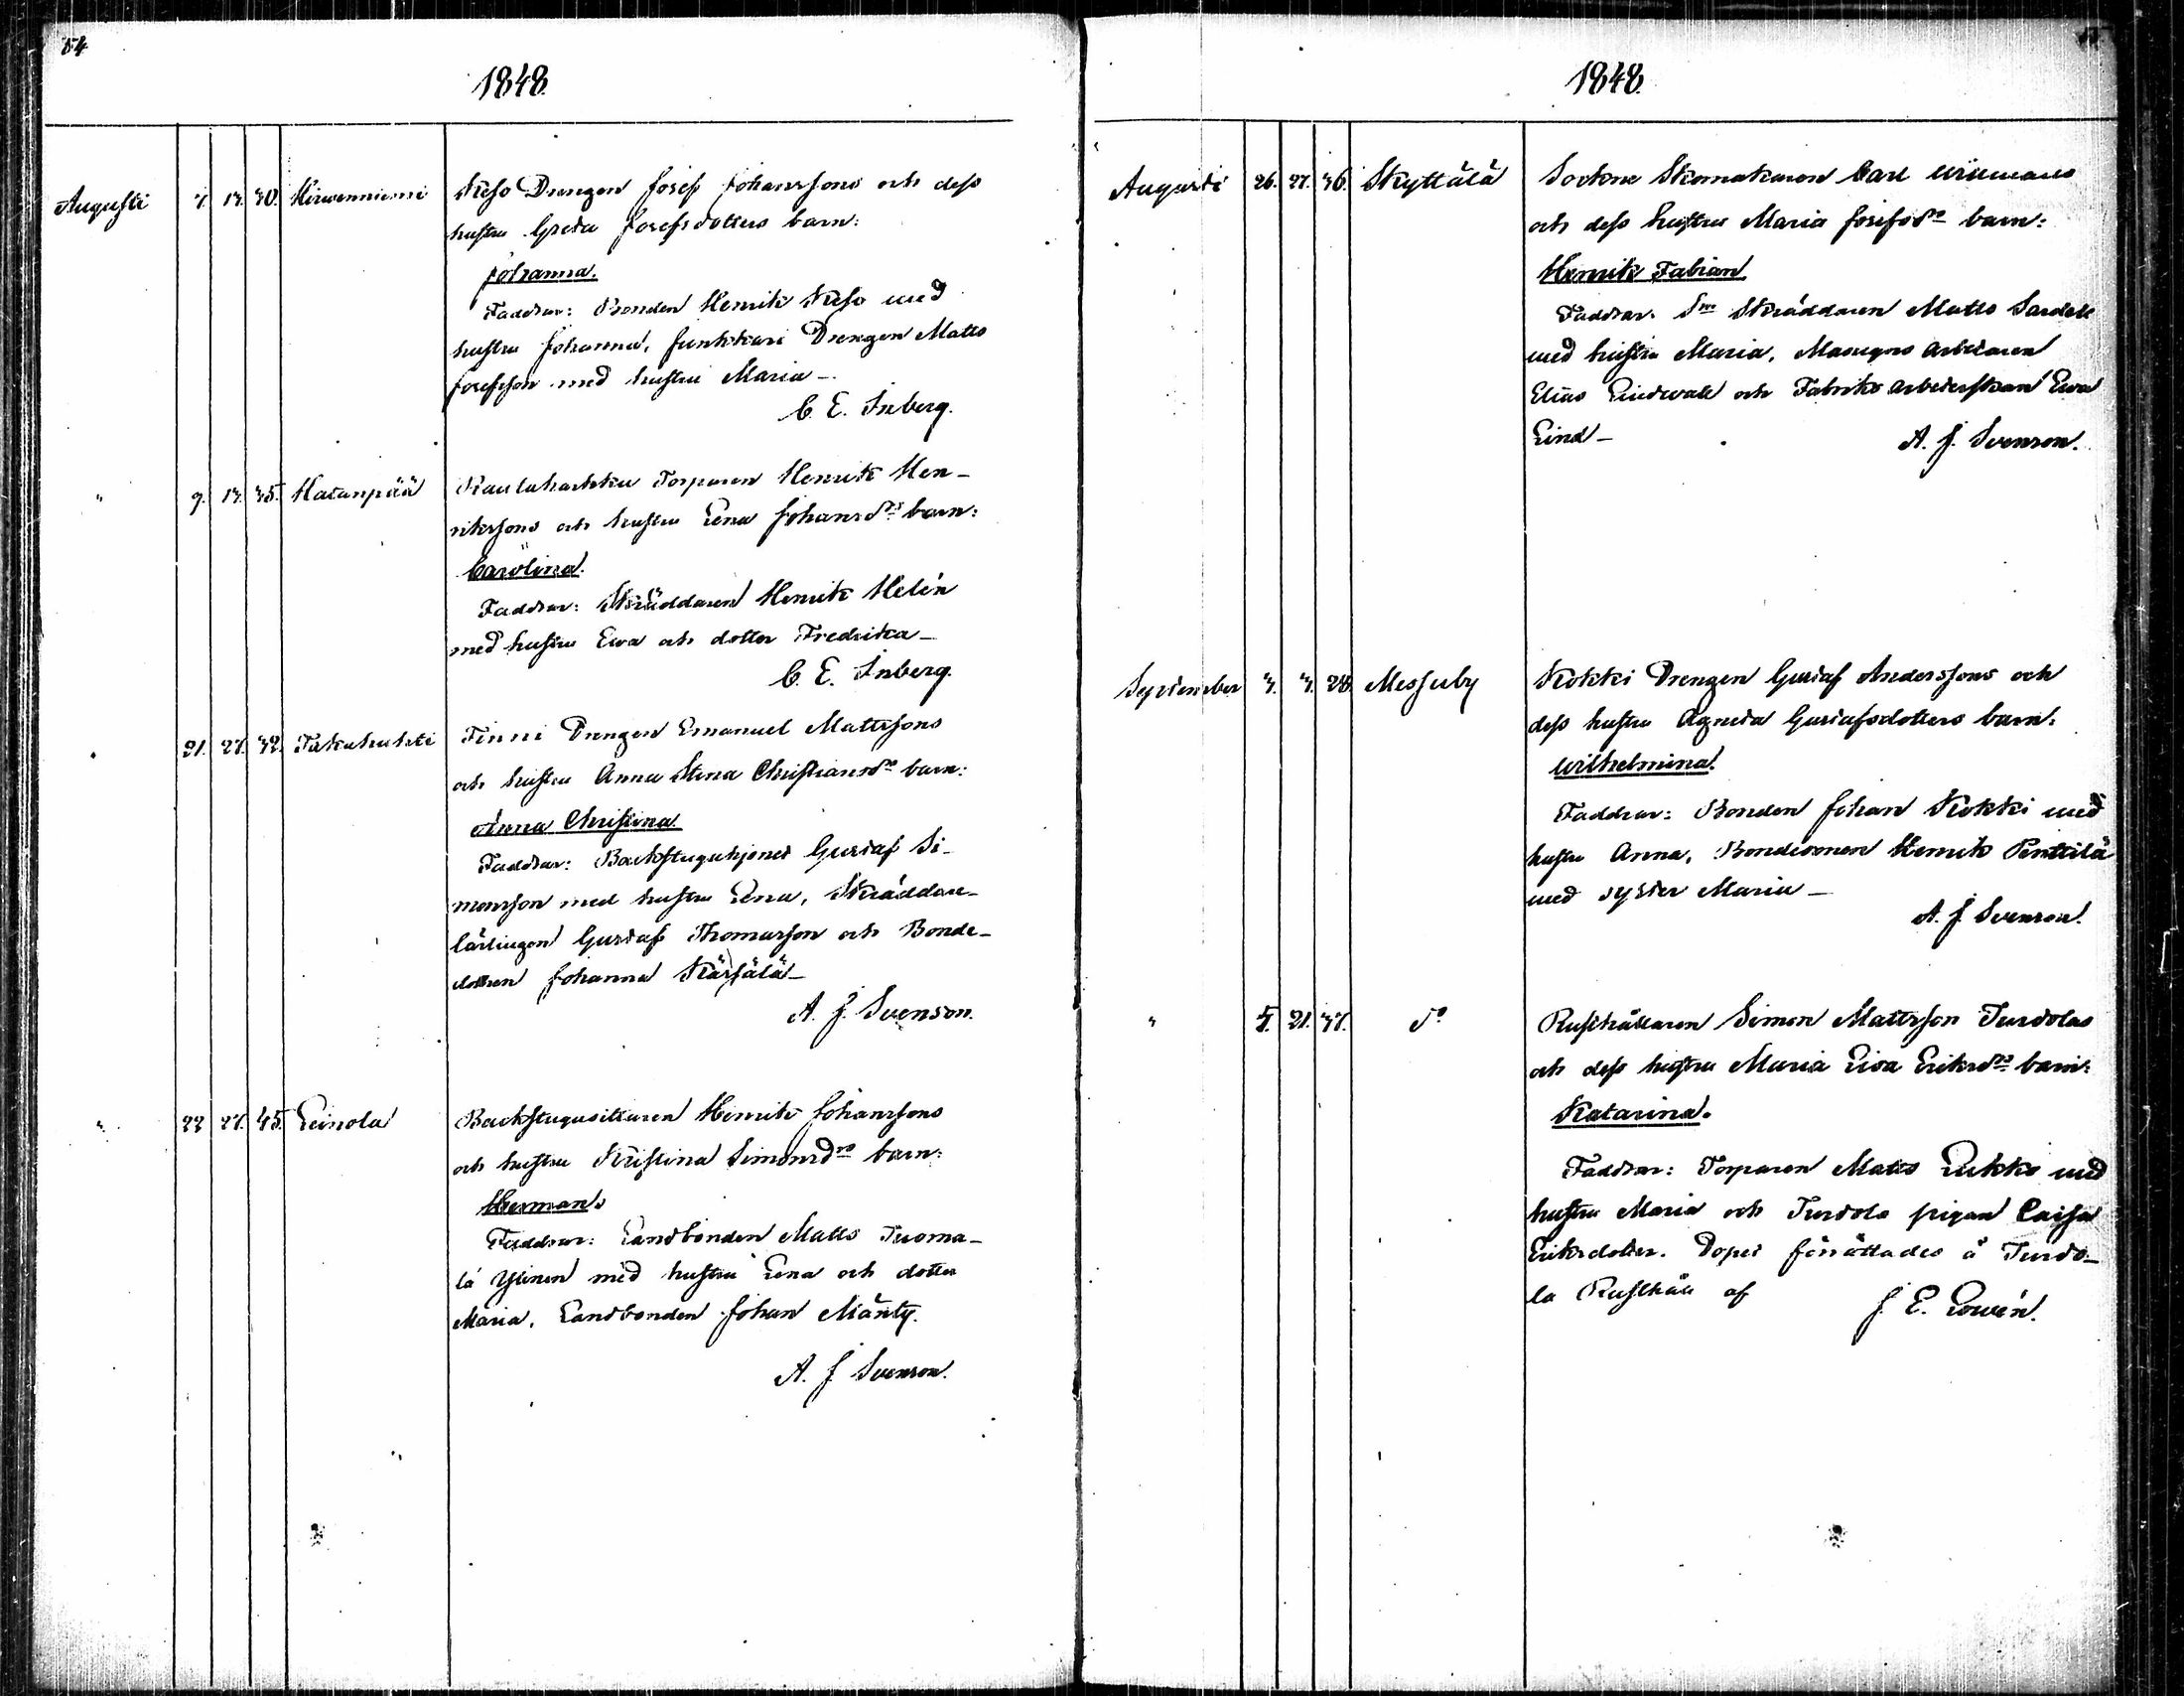 54
1848.
Augusti 7. 13. 30. Hirvenniemi Keso Drengen Josef Johanssons och dess
hustru Greta Josefsdotters barn:
Johanna.
Faddrar: Bonden Henrik Keso med
hustru Johanna, Junkkari Drengen Matts
Josefsson med hustru Maria –
C. E. Inberg.
" 9. 13. 35. Hatanpää Raulaharkku Torparen Henrik Hen–
rikssons och hustru Lena Johansdrs barn:
Carolina.
Faddrar: Skräddaren Henrik Helén
med hustru Ewa och dotter Fredrika –
C. E. Inberg.
" 21. 27. 32. Takahuhti Finni Drengen Emanuel Mattssons
och hustru Anna Stina Christiansdrs barn:
Anna Christina.
Faddrar: Backstuguhjonet Gustaf Si–
monsson med hustru Lena, Skräddare–
lärlingen Gustaf Thomasson och Bonde–
dottren Johanna Kärsälä –
A. J. Svenson.
" 22. 27. 45. Leinola Backstugusittaren Henrik Johanssons
och hustru Kristina Simonsdrs barn:
Herman.
Faddrar: Landbonden Matts Tuoma–
la Ylinen med hustru Lena och dotter
Maria, Landbonden Johan Mänty.
A. J. Svenson.
1848.
Augusti 26. 27. 36. Skyttälä Sockne Skomakaren Carl Wiiumans
och dess hustru Maria Josefsdrs barn:
Henrik Fabian.
Faddrar: Sne Skräddaren Matts Sardell
med hustru Maria, Masugns arbetaren
Elias Lindwall och Fabriks arbeterskan Ewa
Lind – A. J. Svenson.
September 3. 3. 28. Messuby Kokki Drengen Gustaf Anderssons och
dess hustru Agneta Gustafsdotters barn:
Wilhelmina.
Faddrar: Bonden Johan Kokki med
hustru Anna, Bondesonen Henrik Penttilä
med syster Maria –
A. J. Svenson.
" 7. 21. 37. do Rusthållaren Simon Mattsson Turtolas
och dess hustru Maria Lisa Eriksdrs barn:
Katarina.
Faddrar: Torparen Matts Lukko med
hustru Maria och Turtola pigan Caisa
Eriksdotter. Dopet förrättades å Turto–
la Rusthåll af J. E. Lowén.